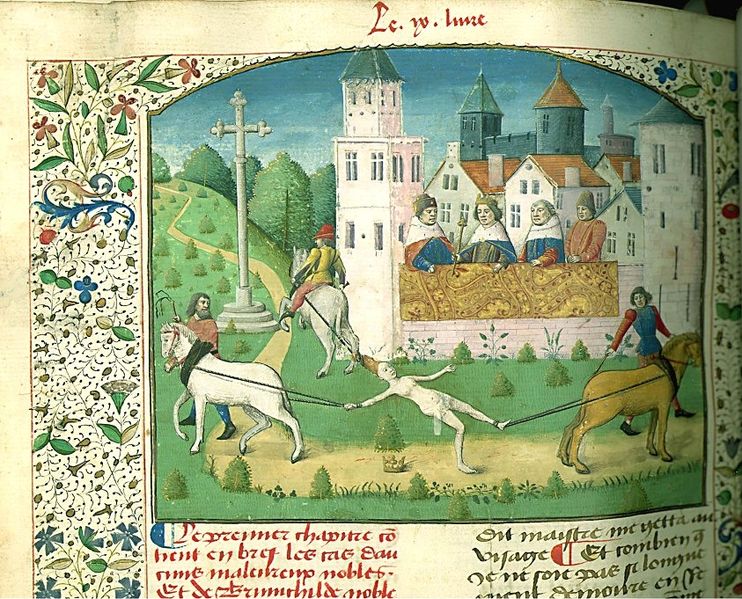 Le. ix. liure
Le premier chapitre cõ
tient en bref les cas dau
cuns maleureux nobles.
Et de Brunichilde noble
dit maistre me getta au
visage Et combien q̃
Je ne soie pas si longue
ment demoure en